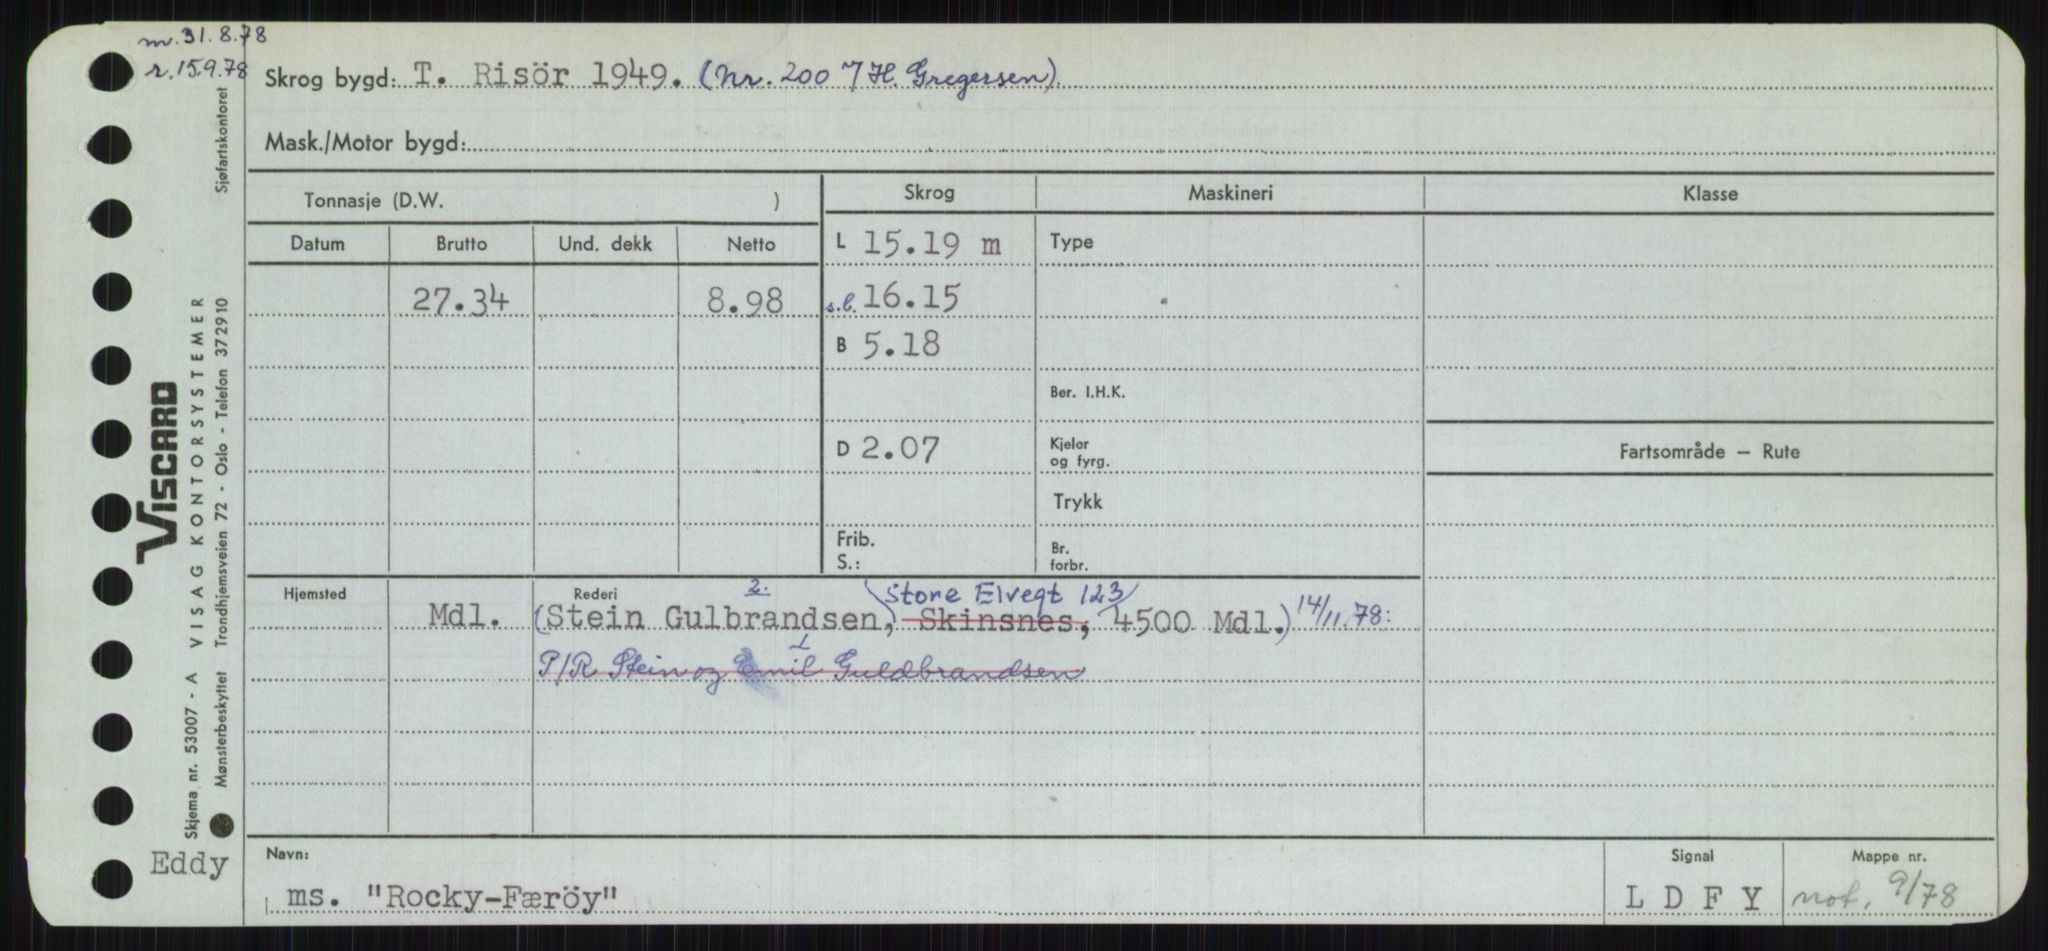 m. 31.8.78
r. 15.9.78
Skrog bygd: T. Risör 1949. (Nr. 200 7 H. Gregersen).
Mask./Motor bygd:
Tonnasje (D.W. )
Skrog
Maskineri
Klasse
Datum
Brutto
Und. dekk
Netto
L 15.19 m
Type
27.34
8.98
s.l. 16.15
B 5.18
Ber. I.H.K.
D 2.07
Kjeler
og fyrg.
Fartsområde – Rute
Trykk
Frib.
S.:
Br.
forbr.
Hjemsted
Rederi
2.
Store Elvegt 123
Mdl. (Stein Gulbrandsen, Skinsnes, 4500 Mdl.) 14/11.78:
1
P/R Stein og Emil Guldbrandsen
Navn:
Signal
Mappe nr.
Eddy
ms. "Rocky-Færöy"
L D F Y
not. 9/78
Viscard
VISAG KONTORSYSTEMER
Skjema nr. 53007 - A
Mønsterbeskyttet Trondhjemsveien 72 - Oslo - Telefon 372910
Sjøfartskontoret